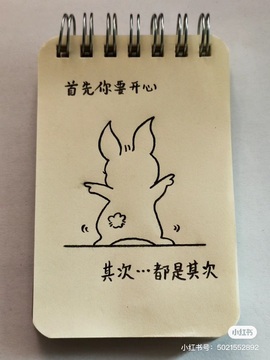 首先你要开心
其次…都是其次
小红书
小红书号：5021552992